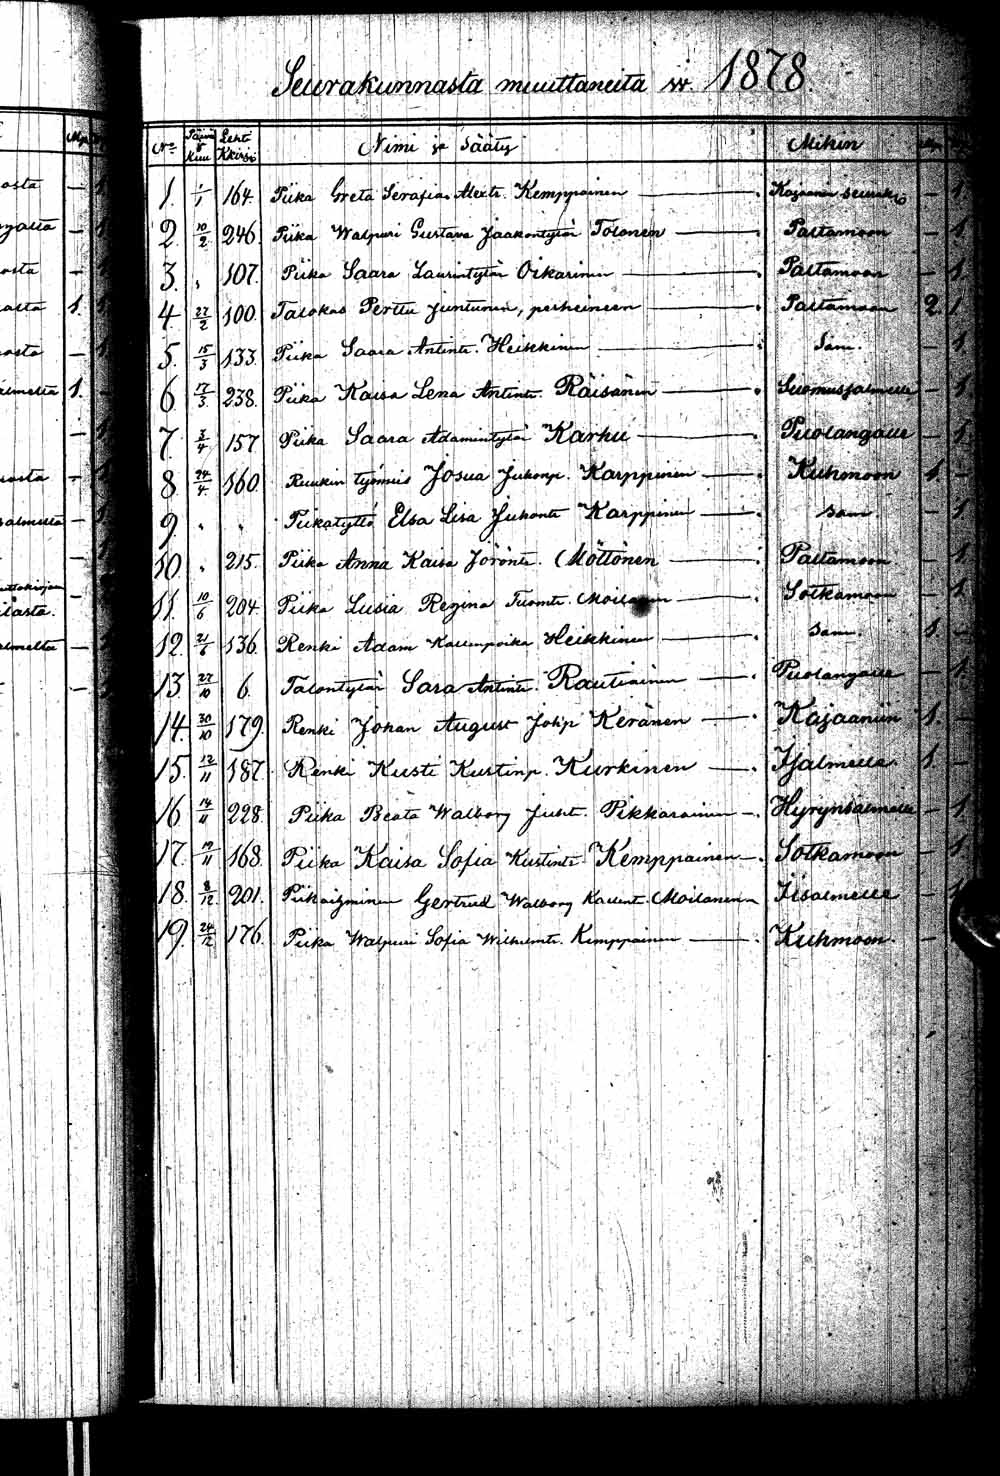 Seurakunnasta muuttaneita w. 1878.
No Päivä & Kuu Lehti Kkirja Nimi ja Sääty Mihin Mp. Np.
1. 1/1 164. Piika Greta Serafia Alexts. Kemppainen Kajaanin seurak. — 1.
2. 10/2 246. Piika Walpuri Gustava Jaakontytär Tolonen Paltamoon — 1.
3. " 107. Piika Saara Laurintytär Oikarinen Paltamoon — 1.
4. 22/2 100. Talokas Perttu Juntunen, perheineen Paltamoon 2. 1.
5. 15/3 133. Piika Saara Antint. Heikkinen Sam. — 1.
6. 17/3 238. Piika Kaisa Lena Antint. Räisänen Suomusjalmelle — 1.
7. 3/4 157 Piika Saara Adamintytär Karhu Puolangalle — 1.
8. 24/4 160. Ruukin työmies Josua Juhonp. Karppinen Kuhmoon 1. —
9. " " Piikatyttö Elsa Lisa Juhont. Karppinen Sam. — 1.
10. " 215. Piika Anna Kaisa Jörönt. Möttönen Paltamoon — 1.
11. 10/6 204. Piika Lusia Regina Tuomt. Moilanen Sotkamoon — 1.
12. 21/6 136. Renki Adam Kallenpoika Heikkinen Sam. 1. —
13. 22/10 6. Talontytär Sara Antint. Rautiainen Puolangalle — 1.
14. 30/10 179. Renki Johan August Johp. Keränen Kajaaniin 1. —
15. 12/11 187. Renki Kusti Kustinp. Kurkinen Ijsalmelle 1. —
16. 14/11 228. Piika Beata Walborg Juht. Pikkarainen Hyrynsalmelle — 1.
17. 19/11 168. Piika Kaisa Sofia Kustint. Kemppainen Sotkamoon — 1.
18. 8/12 201. Gertrud Walborg Kallent. Moilanen Iisalmelle — 1.
19. 24/12 176. Piika Walpuri Sofia Wilhelmt. Kemppainen Kuhmoon. —